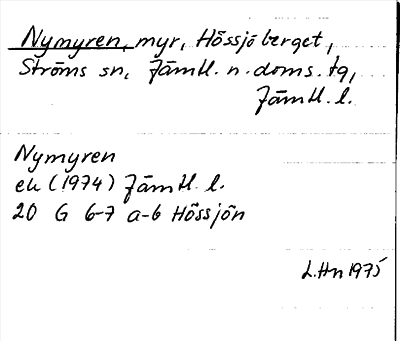 Nymyren, myr, Hössjöberget,
Ströms sn, Jämtl. n. doms. tg,
Jämtl. l.
Nymyren
ek (1974) Jämtl. l.
20 G 6-7 a-b Hössjön
L.Hn 1975